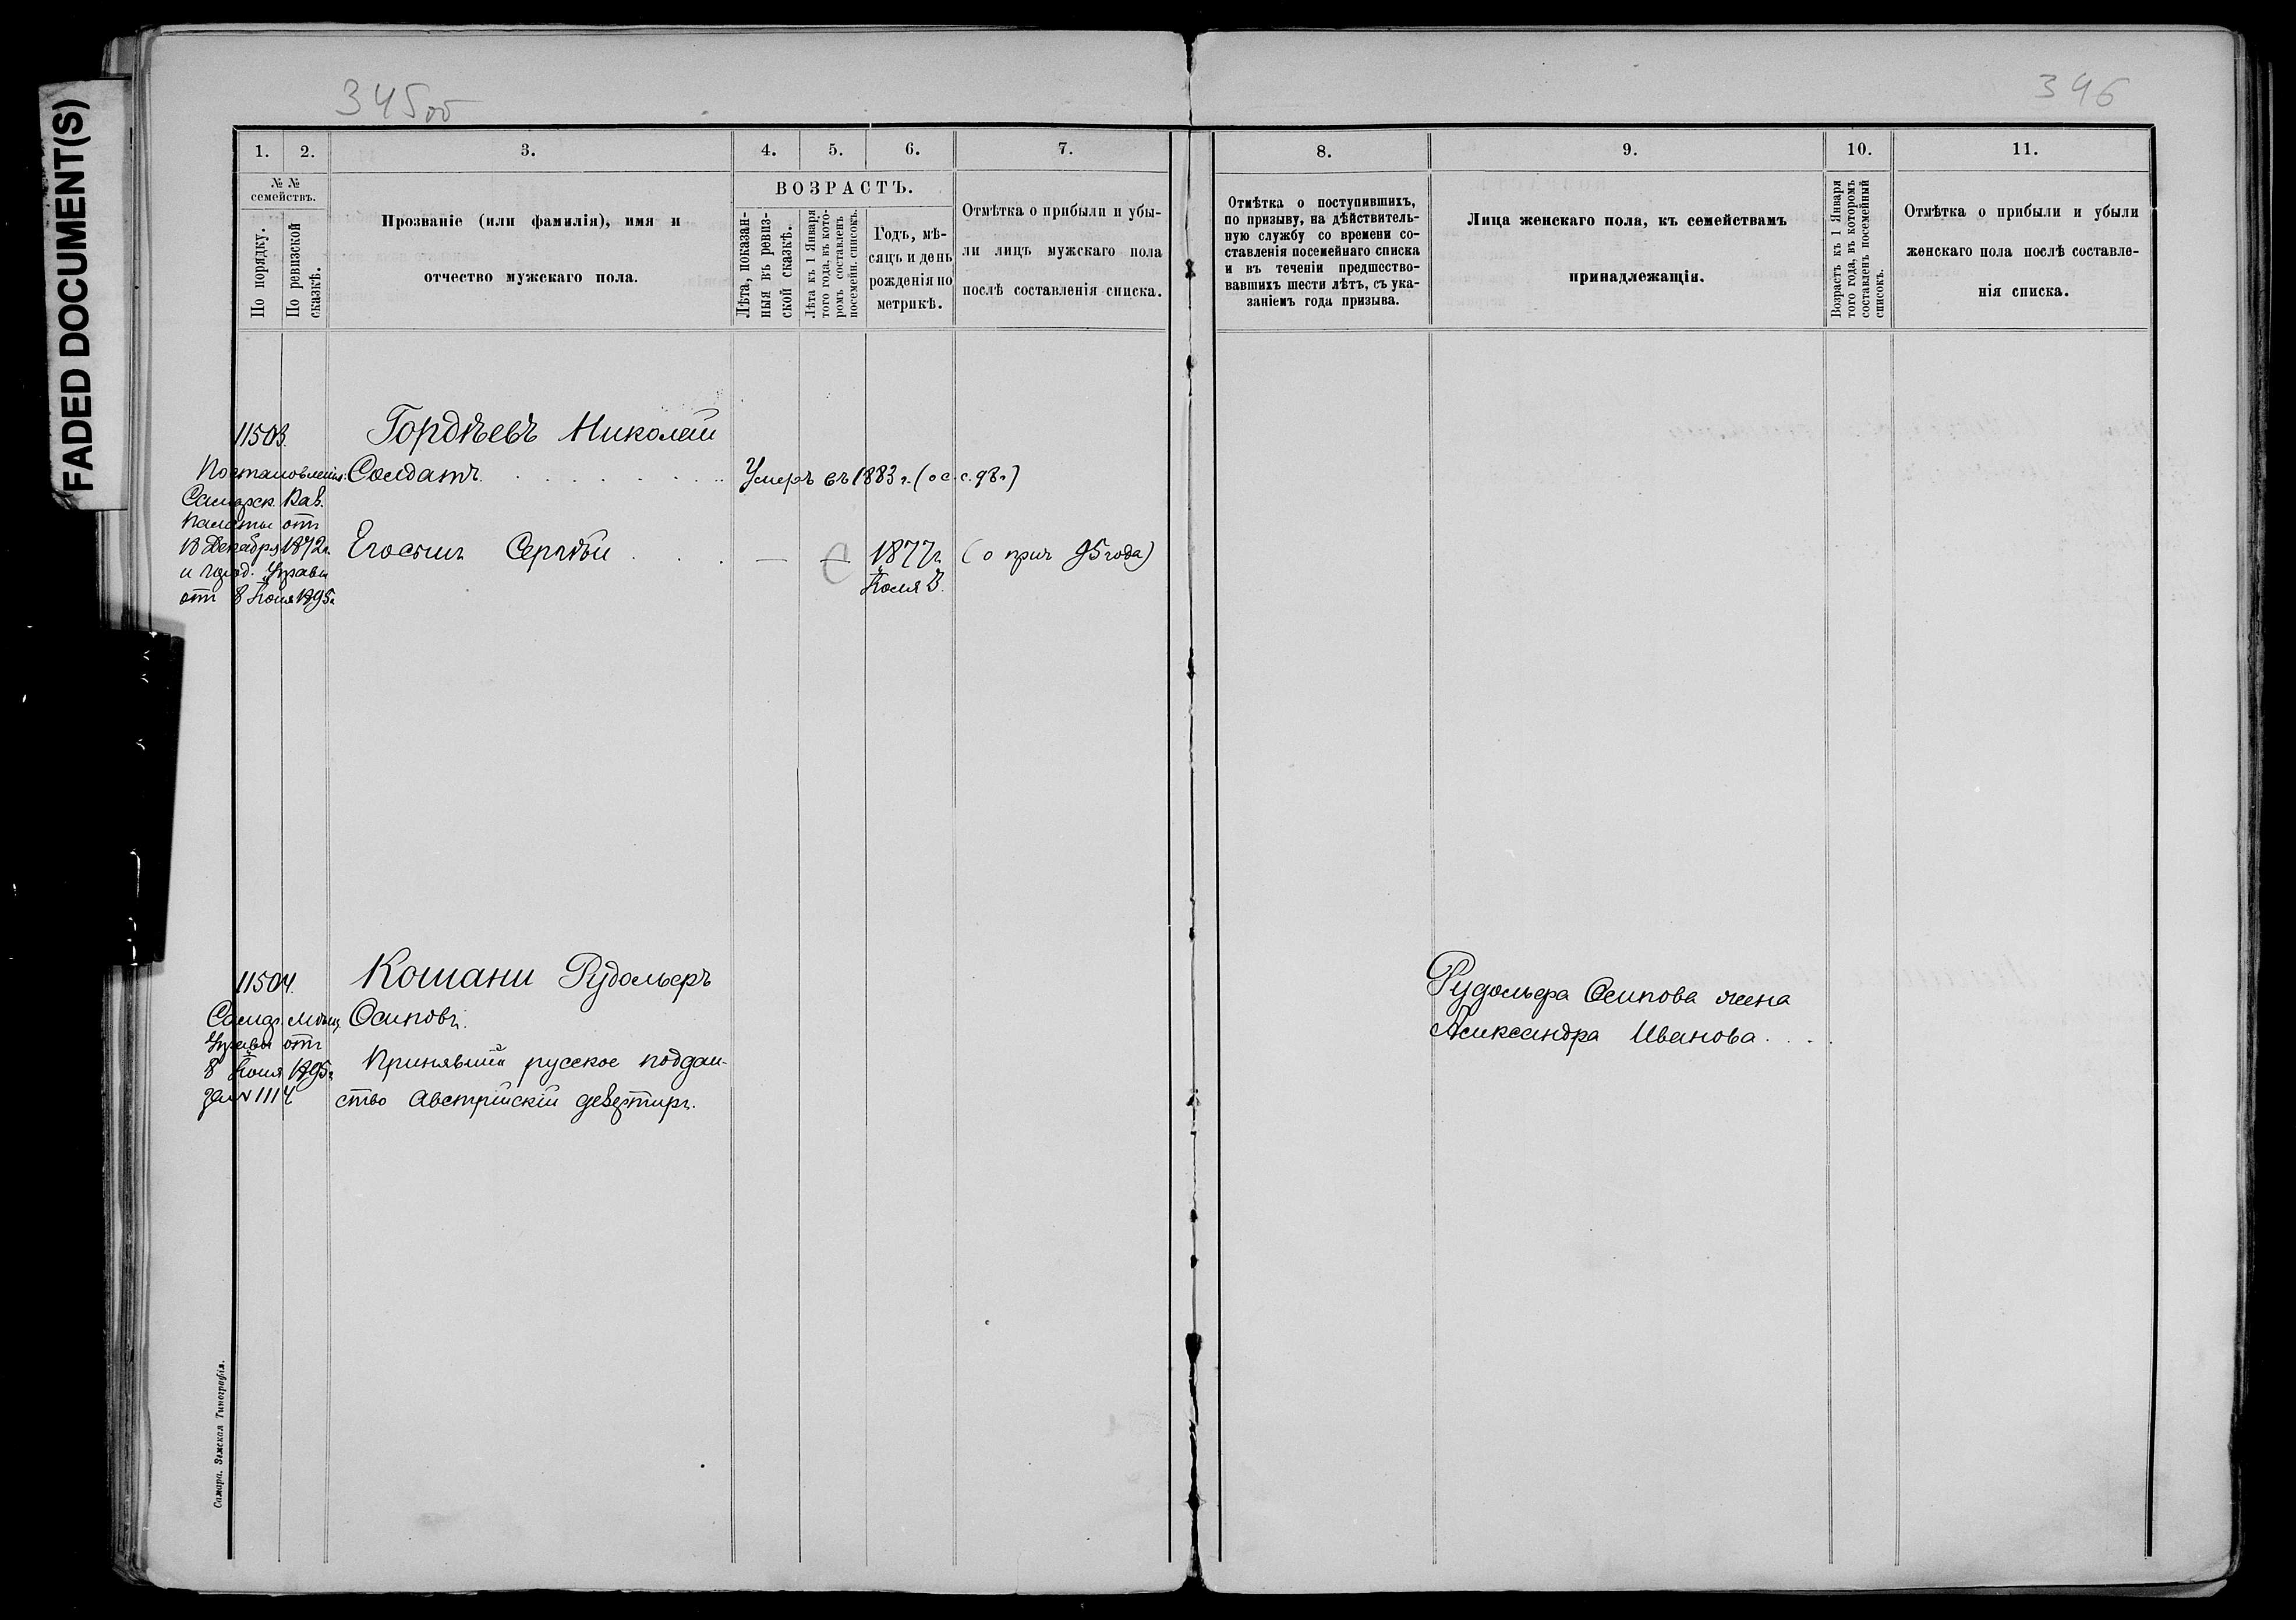 FADED DOCUMENT(S)
345 об
346
1. 2. 3. 4. 5. 6. 7.
8. 9. 10. 11.
№ №
семействъ.
По порядку.
По ревизской
сказкѣ.
Прозваніе (или фамилія), имя и
отчество мужскаго пола.
ВОЗРАСТЪ.
Лѣта, показан-
ныя въ ревиз-
ской сказкѣ.
Лѣта къ 1 Января
того года, въ кото-
ромъ составленъ
посемейн. списокъ.
Годъ, мѣ-
сяцъ и день
рожденія по
метрикѣ.
Отмѣтка о прибыли и убы-
ли лицъ мужскаго пола
послѣ составленія списка.
Отмѣтка о поступившихъ,
по призыву, на дѣйствитель-
ную службу со времени со-
ставленія посемейнаго списка
и въ теченіи предшество-
вавшихъ шести лѣтъ, съ ука-
заніемъ года призыва.
Лица женскаго пола, къ семействамъ
принадлежащія.
Возрастъ къ 1 Января
того года, въ которомъ
составленъ посемейный
списокъ.
Отмѣтка о прибыли и убыли
женскаго пола послѣ составле-
нія списка.
11503.
Гордѣевъ Николай
Солдатъ
Умеръ въ 1883 г.
Постановленія
Самарск. Каз.
Палаты отъ
Декабря 1872г.
и город. Управы
отъ 8 Іюня 1895г.
Сергѣй
— — 1877г. (о прич 95 года)
Іюля 3.
11504.
Кошани Рудольфъ
Осиповъ.
Принявшій русское поддан-
ство Австрійскій дезертиръ.
Самар. Мѣщ.
Управы отъ
8 Іюня 1895г.
за № 1114
Рудольфа Осипова жена
Александра Иванова
Самара. Земская Типографія.